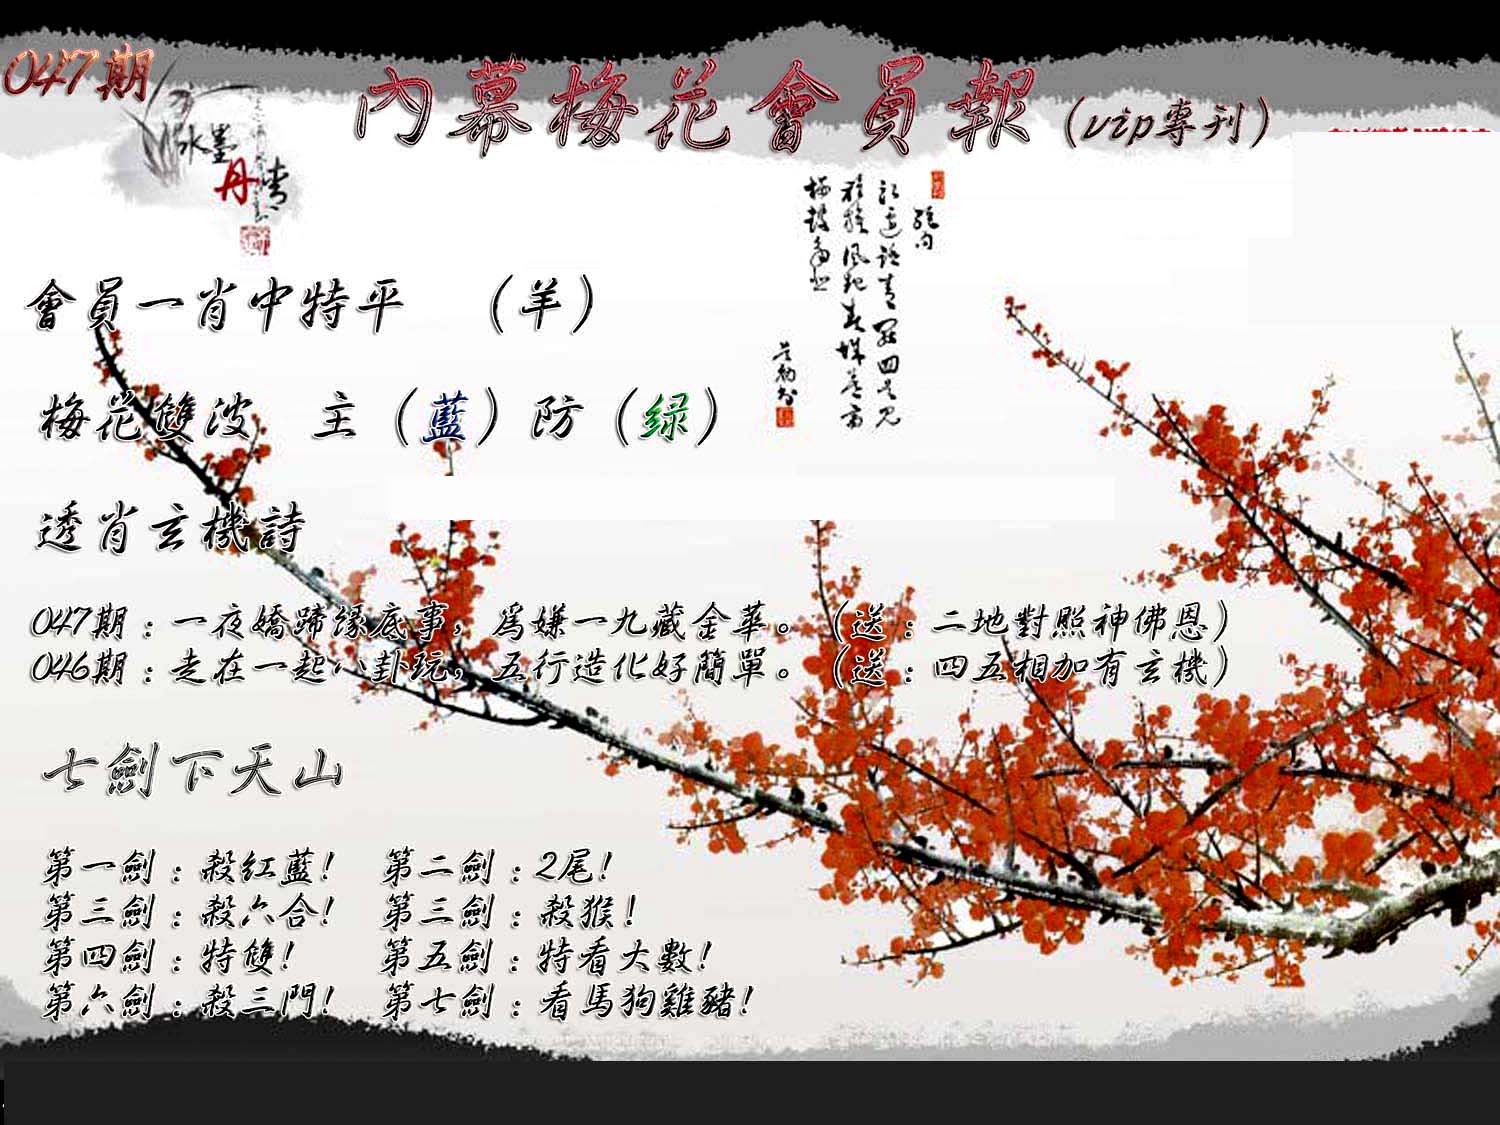 047期
內幕梅花會員報(vip專刊)
水墨
丹青
絕句
會員一肖中特平 (羊)
梅花雙波 主(藍)防(绿)
透肖玄機詩
047期:一夜嬌蹄緣底事,為嫌一九藏金華。(送:二地對照神佛恩)
046期:走在一起八卦玩,五行造化好簡單。(送:四五相加有玄機)
七劍下天山
第一劍:殺紅藍! 第二劍:2尾!
第三劍:殺六合! 第三劍:殺猴!
第四劍:特雙! 第五劍:特看大數!
第六劍:殺三門! 第七劍:看馬狗雞豬!